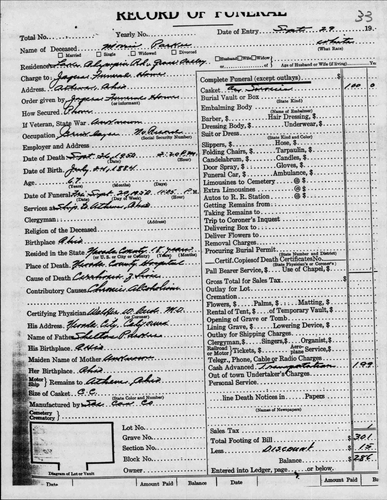 RECORD OF FUNERAL
33
Total No. Date of Entry Sept. 29 19
Name of Deceased Parker White
Married Single Widowed Divorced (What Race)
Residence Husband Wife Widow
Charge to: Jagers Funeral Home Age of Husband or Wife (if living) Yrs.
Address Athens, Ohio
Order given by Jagers Funeral Home
How Secured Phone
If Veteran, State War Unknown
Occupation No Record
(Social Security Number)
Employer and Address
Date of Death Sept. 26, 1952
Date of Birth July 1884
Age 67
(Years) (Months) (Days)
Date of Funeral
Services at Ship to Athens, Ohio
Clergyman
Religion of the Deceased
Birthplace Ohio
Resided in the State
(or U. S. or City or County) (Years) (Months) (Days)
Place of Death County Hospital
Cause of Death
Contributory Causes Chronic Alcoholism
Certifying Physician M.D.
His Address
Name of Father Parker
His Birthplace Ohio
Maiden Name of Mother Unknown
Her Birthplace Ohio
Motor Ship Remains to Athens, Ohio
Size of
(State Color and Number)
Manufactured by
Cemetery
Crematory
Lot No.
Grave No.
Section No.
Block No.
Owner
Diagram of Lot or Vault
Amount Paid Balance
Complete Funeral (except outlays) $
Casket 100 0
(State Kind)
Burial Vault or Box
Embalming Body
(Name of Embalmer)
Barber, $ Hair Dressing, $
Dressing Body, $ Underwear, $
Suit or Dress
(State Kind and Color)
Slippers, $ Hose, $
Folding Chairs, $ Tarpaulin, $
Candelabrum, $ Candles, $
Door Spray, $ Gloves, $
Funeral Car, $ Ambulance, $
Limousines to Cemetery @ $
Extra Limousines @ $
Autos to R. R. Station @ $
Getting Remains from
Taking Remains to
Trip to Coroner's Inquest
Delivering Box to
Deliver Flowers to
Removal Charges
Procuring Burial Permit
(State Number and District)
Certif. Copies of Death Certificates No.
(State Physician's or Coroner's)
Pall Bearer Service, $ Use of Chapel, $
Gross Total for Sales Tax $
Outlay for Lot
Cremation
Flowers, $ Palms, $ Matting, $
Rental of Tent, $ of Temporary Vault, $
Opening of Grave or Tomb
Lining Grave, $ Lowering Device, $
Outlay for Shipping Charges
Clergyman, $ Singers, $ Organist, $
Tickets, $ Service, $
Telegr., Phone, Cable or Radio Charges
Cash Advanced Transportation 199
Out of town Undertaker's Charges
Personal Service
line Death Notices in Papers
(Names of Newspapers)
Sales Tax 1
Total Footing of Bill $ 301
Less Discount $ 15
Balance $ 286
Entered into Ledger, page or below.
Amount Paid Balance